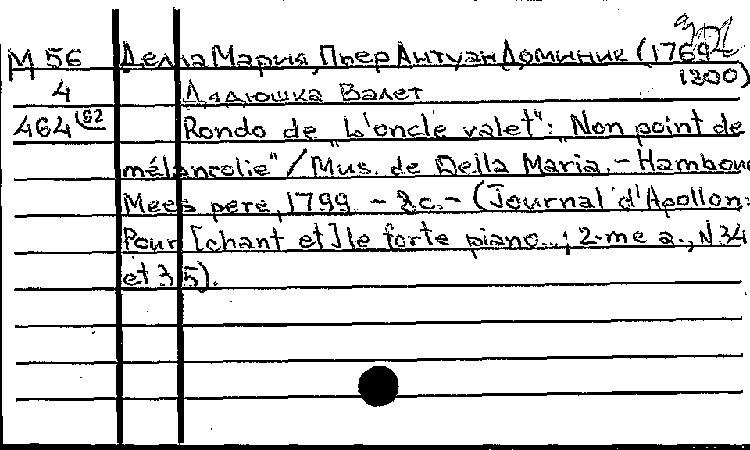 М 56 Делла Мария, Пьер Антуан Доминик (1769-
1800)
4 Дядюшка Валет
464 Rondo de "L'oncle valet": "Non point de
mélancolie" / Mus. de Della Maria. - Hambourg
Mees père, 1799 - 2c. - (Journal d'Apollon:
Pour [chant et] le forte piano...; 2-me a., N 34
et 35).